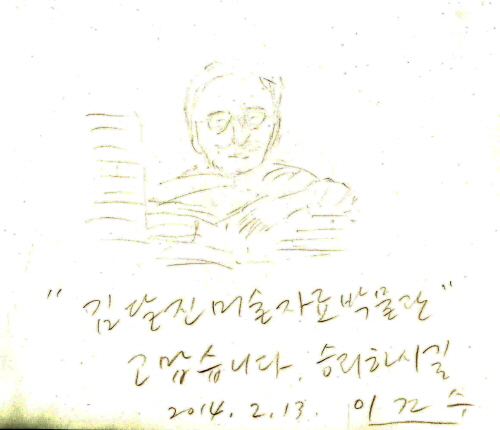 "김달진미술자료박물관"
고맙습니다. 승리하시길
2014. 2. 13. 이건수